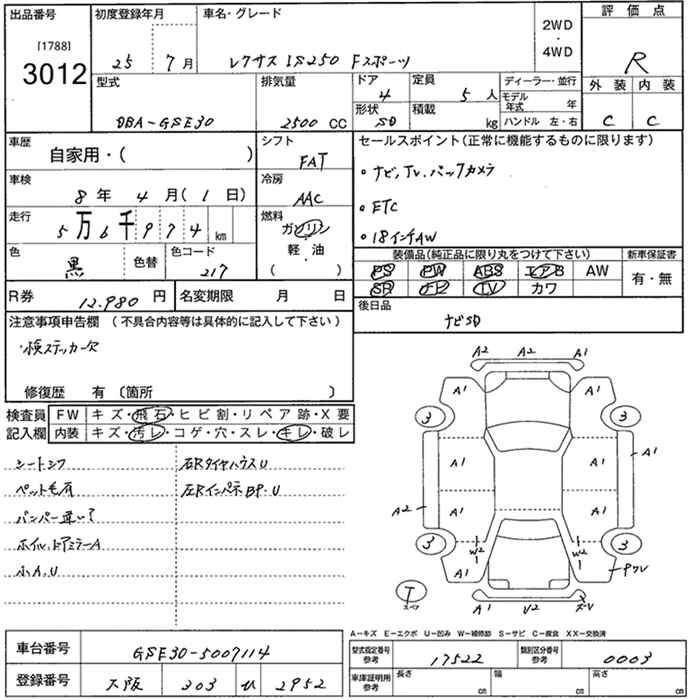 出品番号 初度登録年月 車名・グレード 2WD・4WD 評価点
[1788]
3012 25 7月 レクサス IS250 Fスポーツ R
型式 排気量 ドア 4 定員 5 人 ディーラー・並行 外装 内装
モデル年式 年
DBA-GSE30 2500 CC 形状 SD 積載 kg ハンドル 左・右 C C
車歴 自家用・( ) シフト FAT セールスポイント(正常に機能するものに限ります)
車検 8年 4月(1日) 冷房 AAC 。ナビ,TV.バックカメラ
。ETC
走行 5万6千974km 燃料 ガソリン・軽・油 ( ) 。18インチAW
色 黒 色替 色コード 217 装備品(純正品に限り丸をつけて下さい) 新車保証書
PS PW ABS エアB AW 有・無
SR ナビ TV カワ
R券 12.980 円 名変期限 月 日 後日品
ナビSD
注意事項申告欄 (不具合内容等は具体的に記入して下さい)
・検ステッカー欠
修復歴 有〔箇所 〕
検査員記入欄 FW キズ・飛石・ヒビ割・リペア跡・X要
内装 キズ・汚レ・コゲ・穴・スレ・キレ・破レ
シートシワ 右RタイヤハウスU
ペット毛有 左Rインパネ BP.U
バンパー違いて
ホイル,ドアミラーA
小A.U
A2 A2 A1
A1 A1
3 3
A1 A1 A1
A2 A1 A1
3 W2 W2 3
A1 A1
T スペア A1 U2
A-キズ E-エクボ U-凹み W-補修跡 S-サビ C-腐食 XX-交換済
車台番号 GSE30-5007114 型式指定番号 参考 17522 類別区分番号 参考 0003
登録番号 大阪 303 ひ 2952 車庫証明用 参考 長さ cm 幅 cm 高さ cm